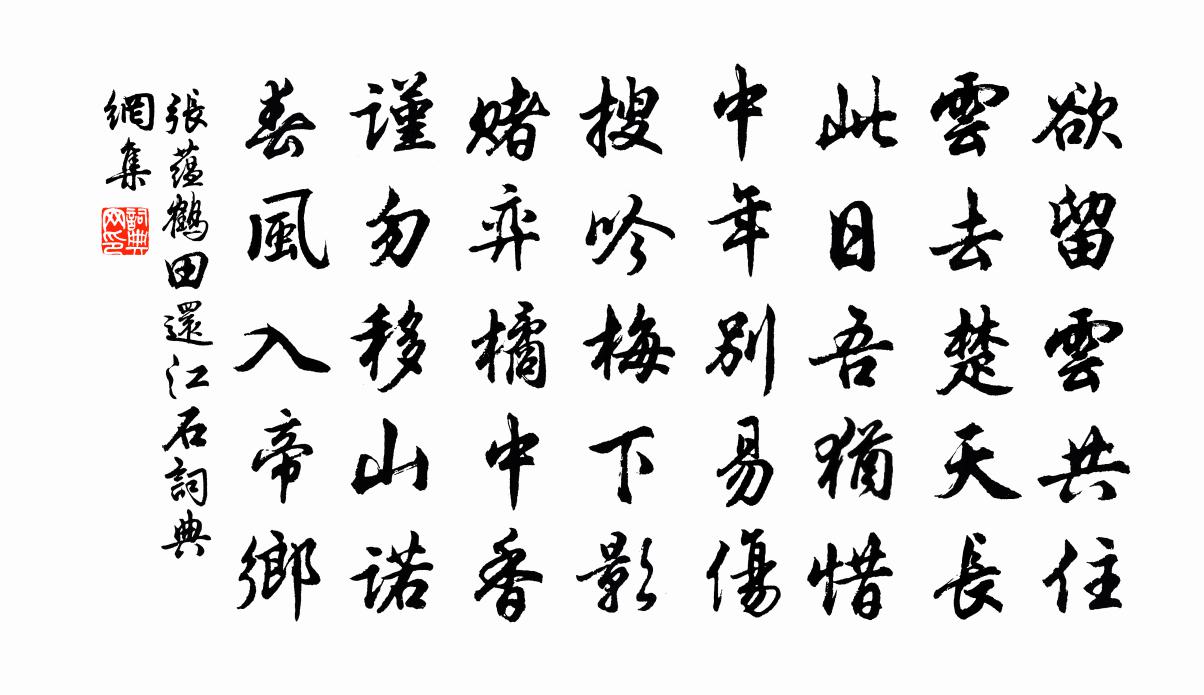 欲留雲共住
雲去楚天長
此日吾猶惜
中年別易傷
搜吟梅下影
賭弈橘中香
謹勿移山諾
春風入帝鄉
張蘊鶴田還江石詞典
網集
詞典
网印